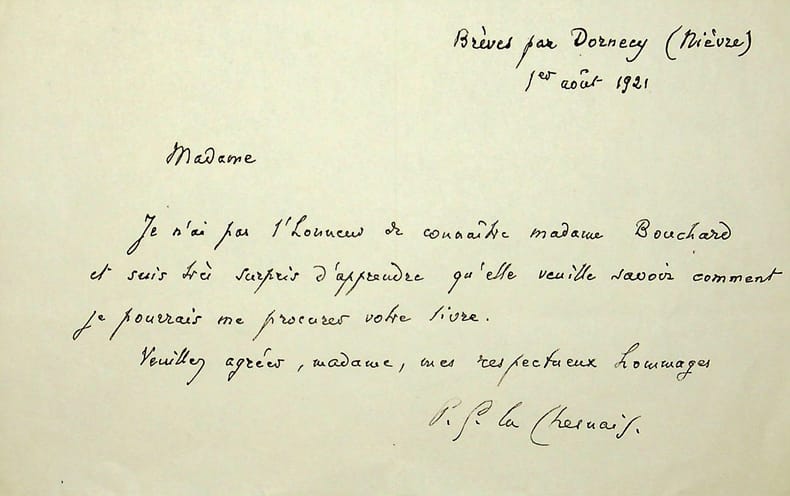 Brèves par Dornecy (Nièvre)
1er août 1921
Madame
Je n'ai pas l'honneur de connaître madame Bouchard
et suis très surpris d'apprendre qu'elle veuille savoir comment
je pourrais me procurer votre livre.
Veuillez agréer, madame, mes respectueux hommages
P. G. la Chesnais.